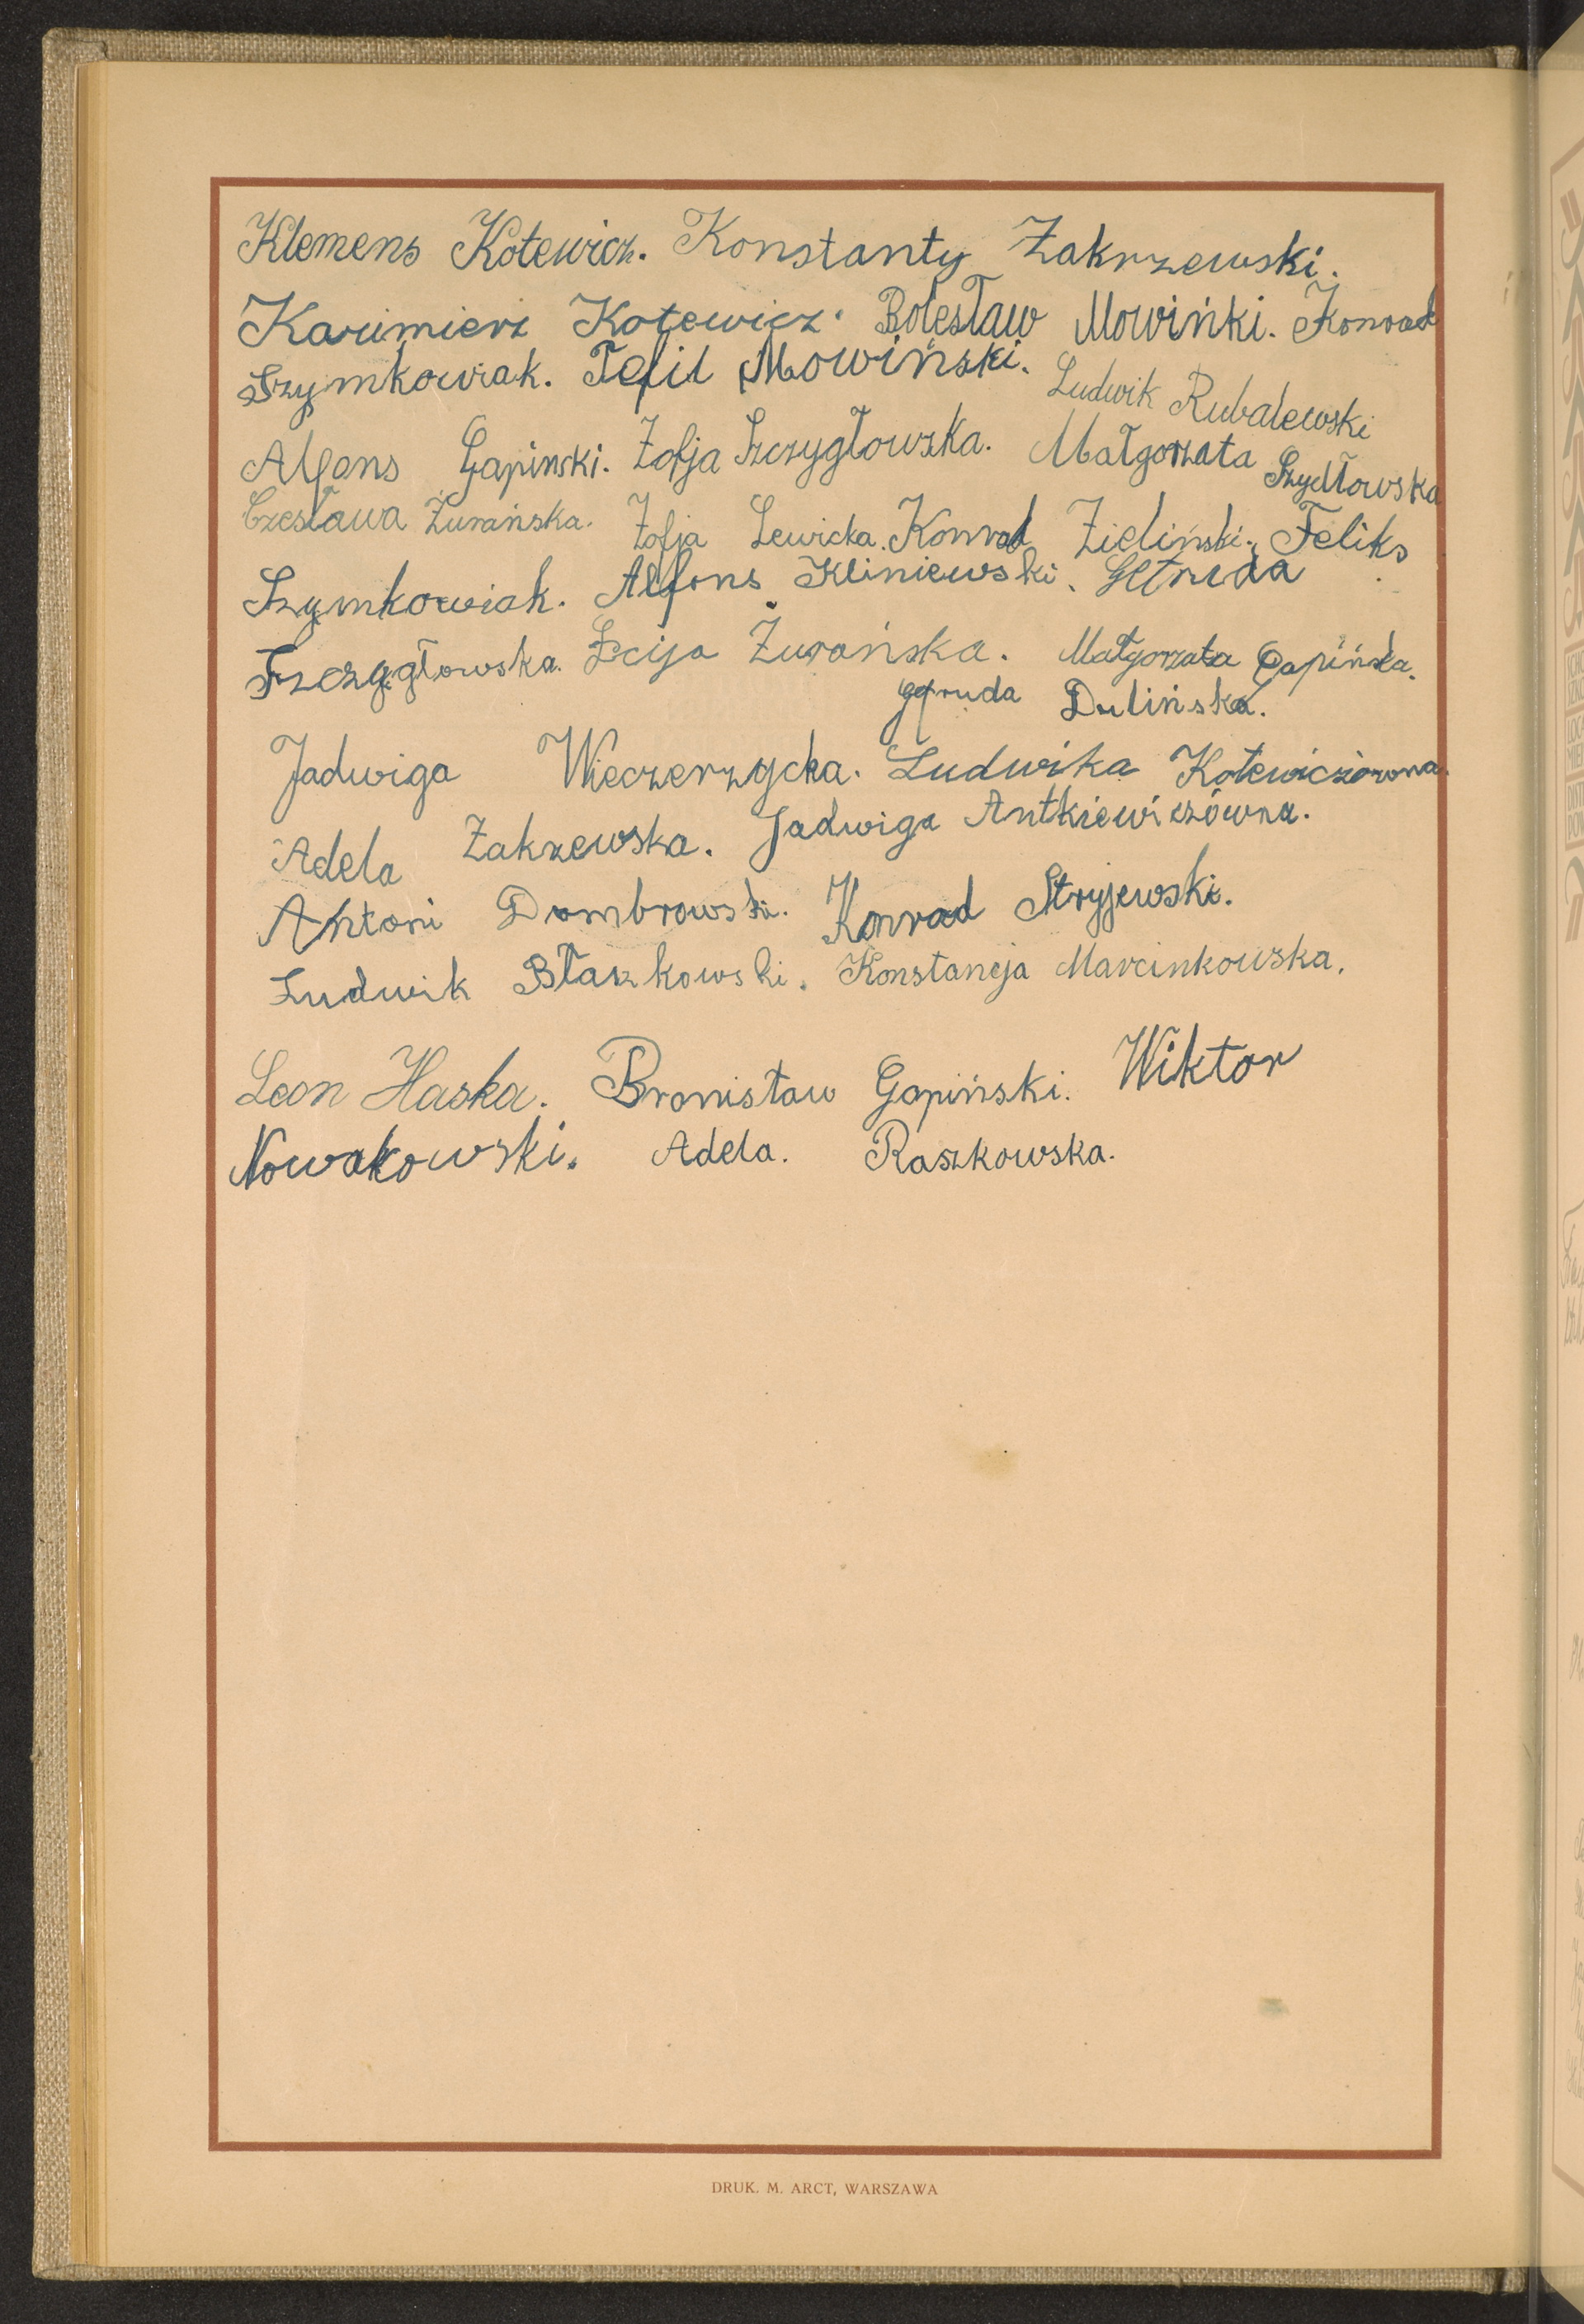 Klemens Kotewicz. Konstanty Zakrzewski.
Kazimierz Kotewicz. Bolesław Mowińki. Konrad
Szymkowiak. Tefil Mowiński. Ludwik Rubalewski
Alfons Gapinski. Zofja Szczygłowska. Małgorzata Szydłowska
Czesława Żurańska. Zofja Lewicka. Konrad Zieliński. Feliks
Szymkowiak. Alfons Kliniewski. Getruda
Szczygłowska. Łcija Żurańska. Małgorzata Gapińska.
Getruda Dulińska.
Jadwiga Wieczerzycka. Ludwika Kotewiczówna.
Adela Zakrzewska. Jadwiga Antkiewiczówna.
Antoni Dombrowski. Konrad Stryjewski.
Ludwik Błaszkowski. Konstancja Marcinkowska.
Leon Haska. Bronisław Gapiński. Wiktor
Nowakowski. Adela. Raszkowska.
DRUK. M. ARCT, WARSZAWA